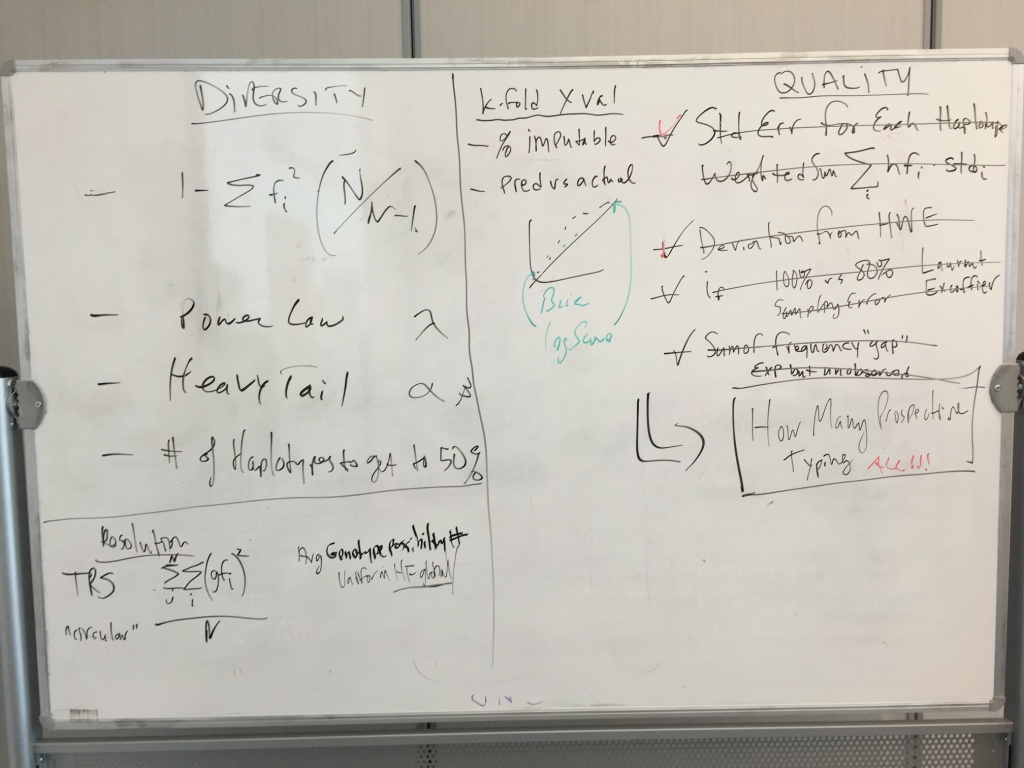 DIVERSITY
- 1 - Σ fᵢ² (N/N-1)
- Power Law λ
- Heavy Tail α
- # of Haplotypes to get to 50%
Resolution
TRS Σ Σ (gfᵢ)²
"circular" N
Avg Genotype possibility #
Uniform HF global
k-fold X val
- % imputable
- Pred vs actual
Brie
log Score
QUALITY
✓ Std Err for Each Haplotype
Weighted Sum Σ hfᵢ stdᵢ
✓ Deviation from HWE
✓ if 100% vs 80% Laurent
Sampling Error Excoffier
✓ Sum of frequency "gap"
Exp but unobserved
How Many Prospective
Typing ALL!!!